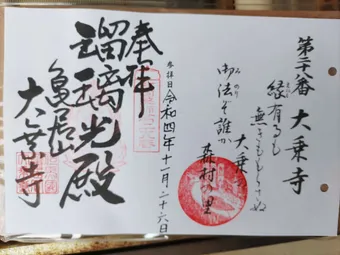 第二十八番 大乗寺
縁有るも
無きももらさぬ
御法ぞ誰か
みのり
大乗
奉拝
参拝日 令和四年十一月二十六日
瑠璃光殿
亀居山
大乗寺